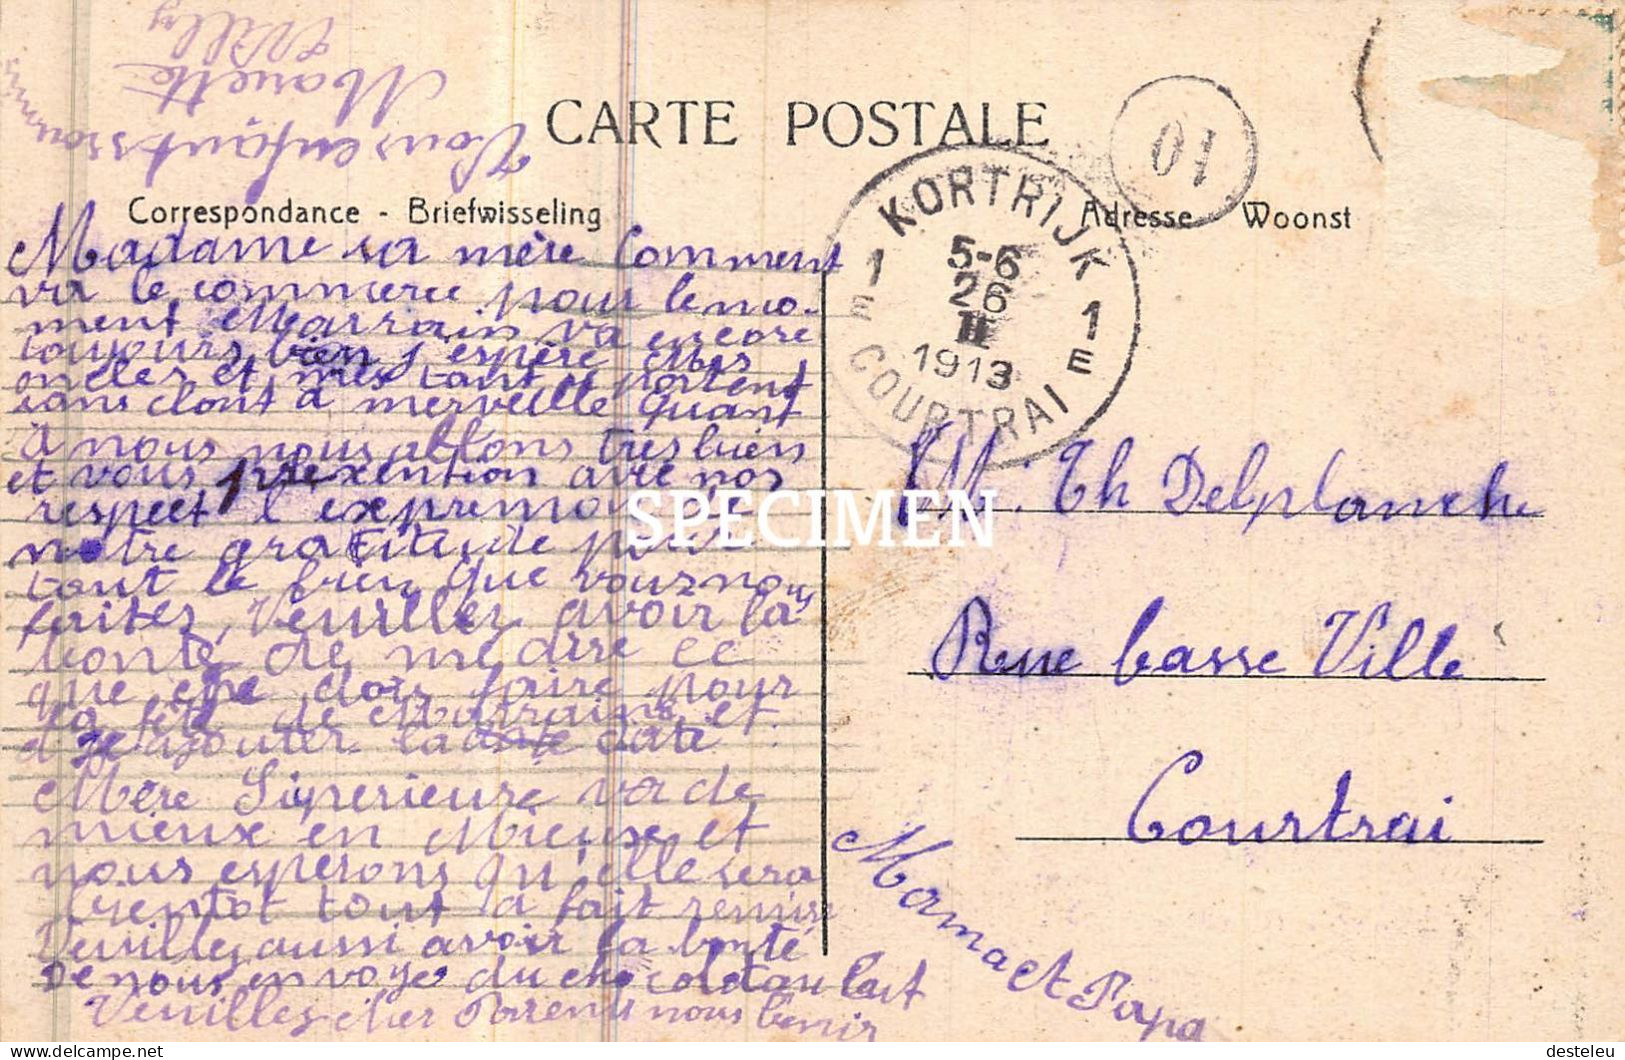 CARTE POSTALE
Correspondance - Briefwisseling
Adresse Woonst
KORTRIJK
1 1
E E
5-6
26
II
1913
COURTRAI
01
Madame sa mère Comment
va le commerce pour le mo-
ment Marrain va encore
toujours bien j'espère Mes
oncles et mes tant portent
sans dont à merveille quant
à nous nous allons tres bien
et vous avec nos
respect l'expremon de
notre gratitude pour
tout le bien que vouz nous
faites, Veuillez avoir la
bonté de me dire ce
que je dois faire pour
la fête de Marraine et
d'ajouter la date
Mère Superieure va de
mieux en Mieux et
nous esperons qu'elle sera
bientot tout a fait remise
Veuillez aussi avoir la bonté
De nous envoye du chocolat au lait
Veuilles cher Parents nous benir
Vous enfants soumis
Mariette
Willy
M. Th Delplanche
Rue basse Ville
Courtrai
Mama et Papa
SPECIMEN
desteleu
delcampe.net